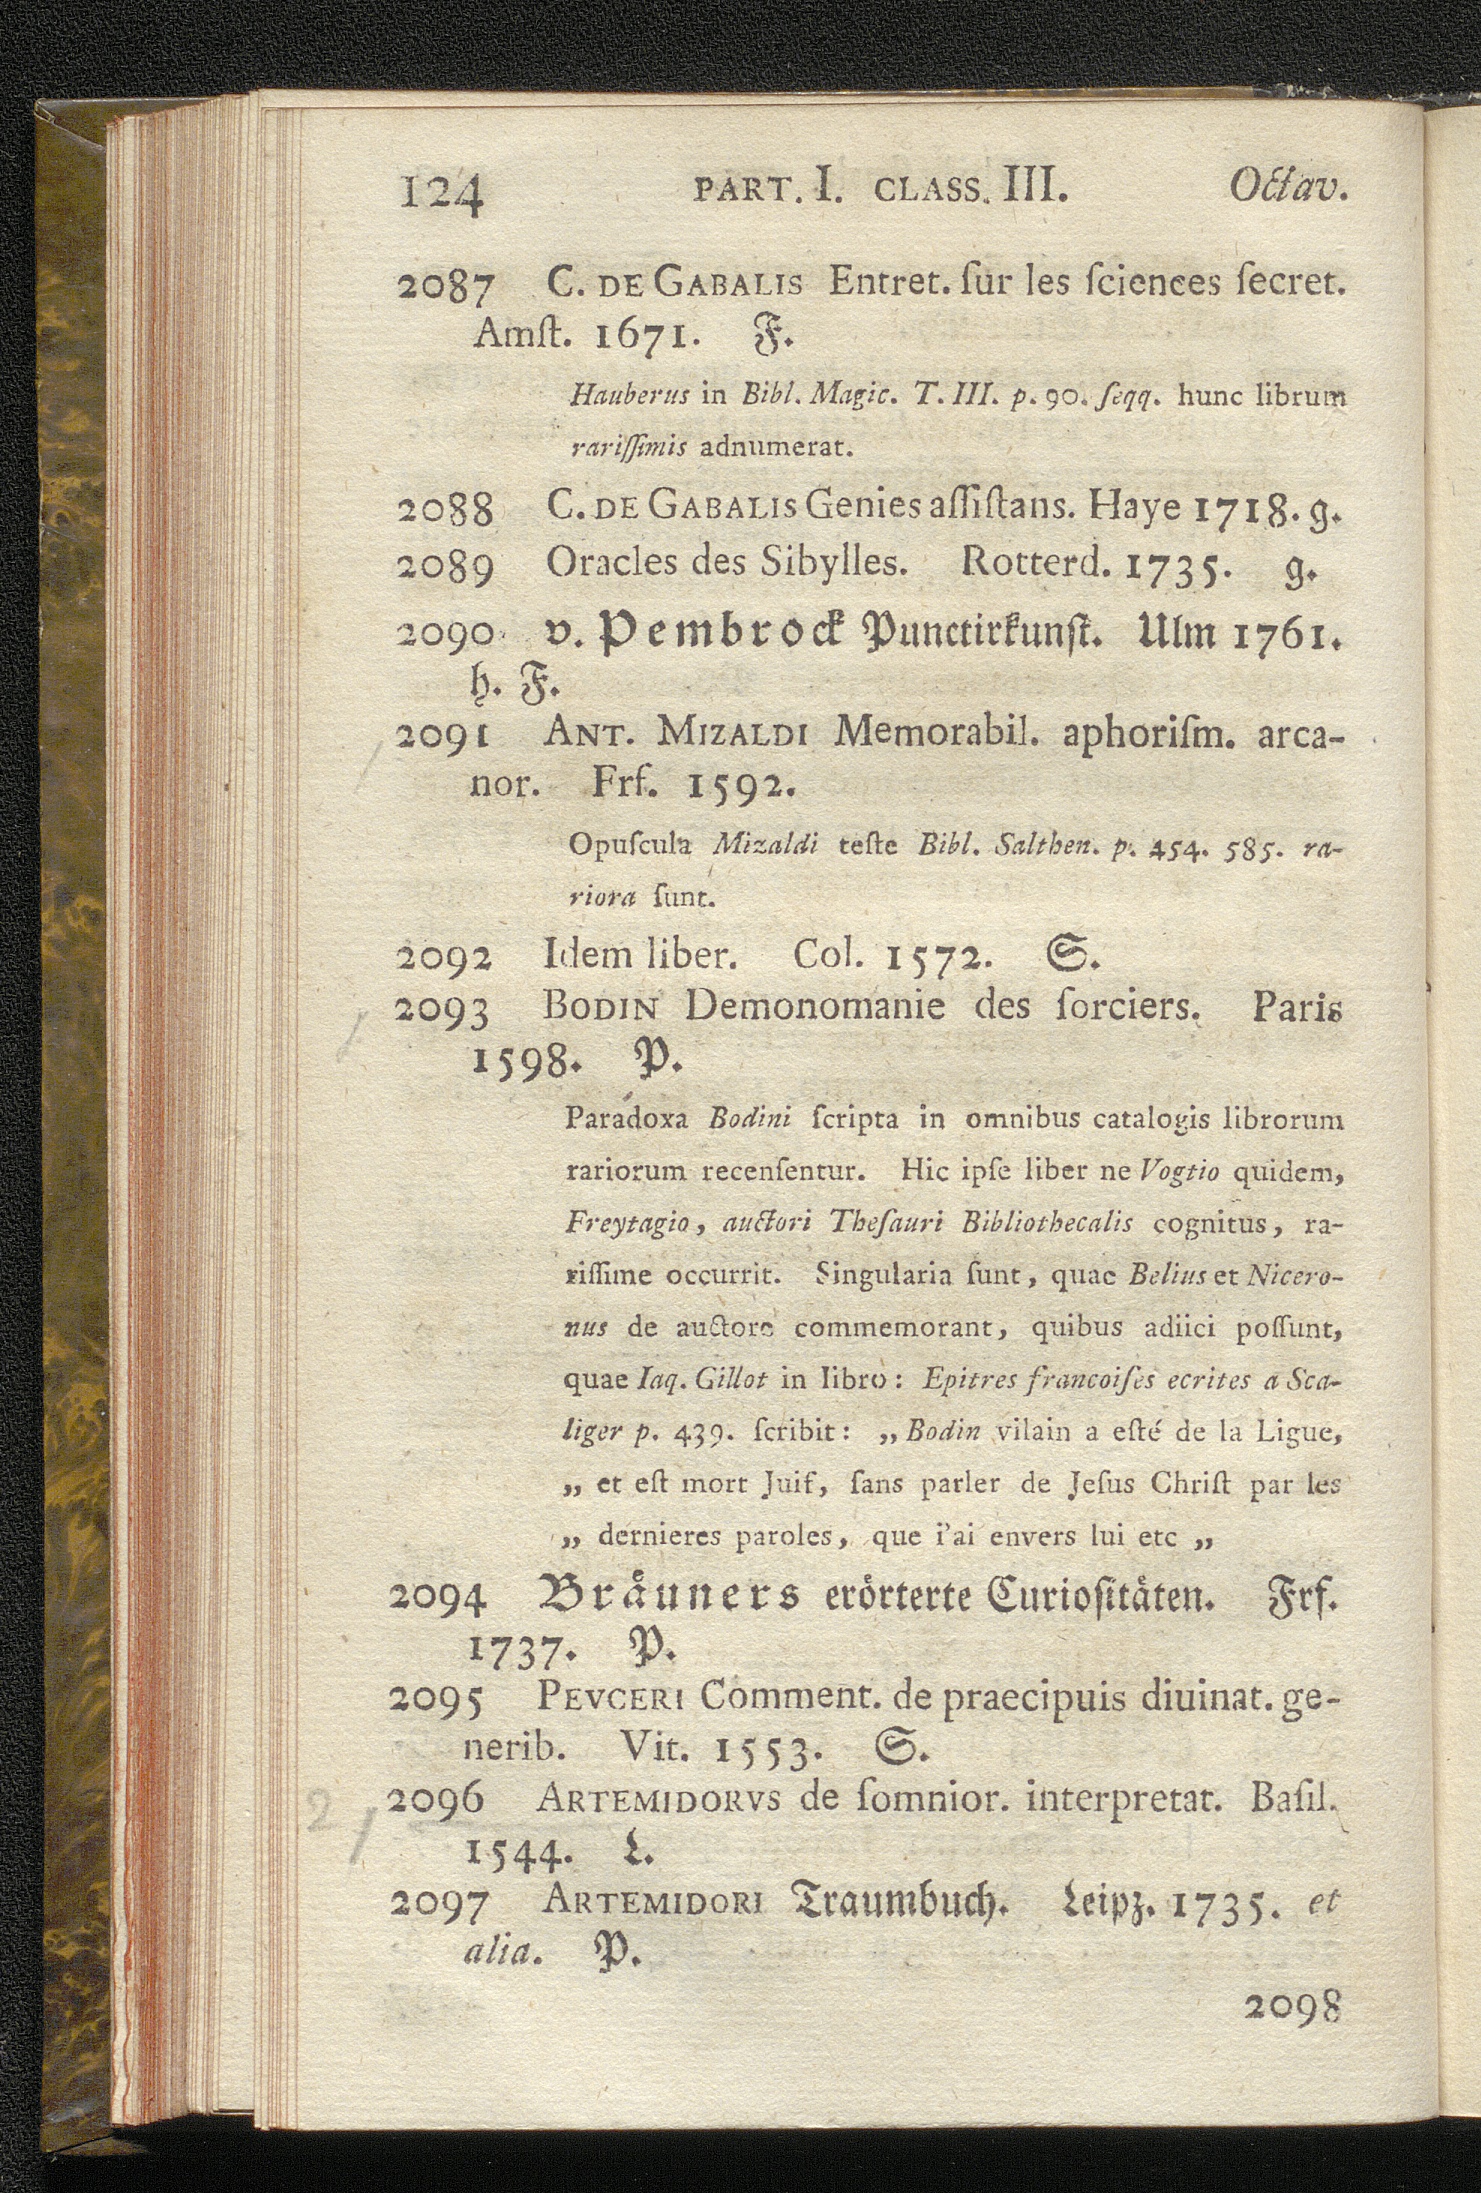 124 PART. I. CLASS. III. Octav.
2087 C. DE GABALIS Entret. ſur les ſciences ſecret.
Amſt. 1671. F.
Hauberus in Bibl. Magic. T. III. p. 90. ſeqq. hunc librum
rariſſimis adnumerat.
2088 C. DE GABALIS Genies aſſiſtans. Haye 1718. g.
2089 Oracles des Sibylles. Rotterd. 1735. g.
2090 v. Pembrock Punctirkunſt. Ulm 1761.
h. F.
2091 ANT. MIZALDI Memorabil. aphoriſm. arca-
nor. Frf. 1592.
Opuſcula Mizaldi teſte Bibl. Salthen. p. 454. 585. ra-
riora ſunt.
2092 Idem liber. Col. 1572. S.
2093 BODIN Demonomanie des ſorciers. Paris
1598. P.
Paradoxa Bodini ſcripta in omnibus catalogis librorum
rariorum recenſentur. Hic ipſe liber ne Vogtio quidem,
Freytagio, auctori Theſauri Bibliothecalis cognitus, ra-
riſſime occurrit. Singularia ſunt, quae Belius et Nicero-
nus de auctore commemorant, quibus adiici poſſunt,
quae Iaq. Gillot in libro: Epitres francoiſes ecrites a Sca-
liger p. 439. ſcribit: „Bodin vilain a eſté de la Ligue,
„ et eſt mort Juif, ſans parler de Jeſus Chriſt par les
„ dernieres paroles, que i'ai envers lui etc „
2094 Bräuners erörterte Curioſitäten. Frf.
1737. P.
2095 PEVCERI Comment. de praecipuis diuinat. ge-
nerib. Vit. 1553. S.
2 / 2096 ARTEMIDORVS de ſomnior. interpretat. Baſil.
1544. L.
2097 ARTEMIDORI Traumbuch. Leipz. 1735. et
alia. P.
2098